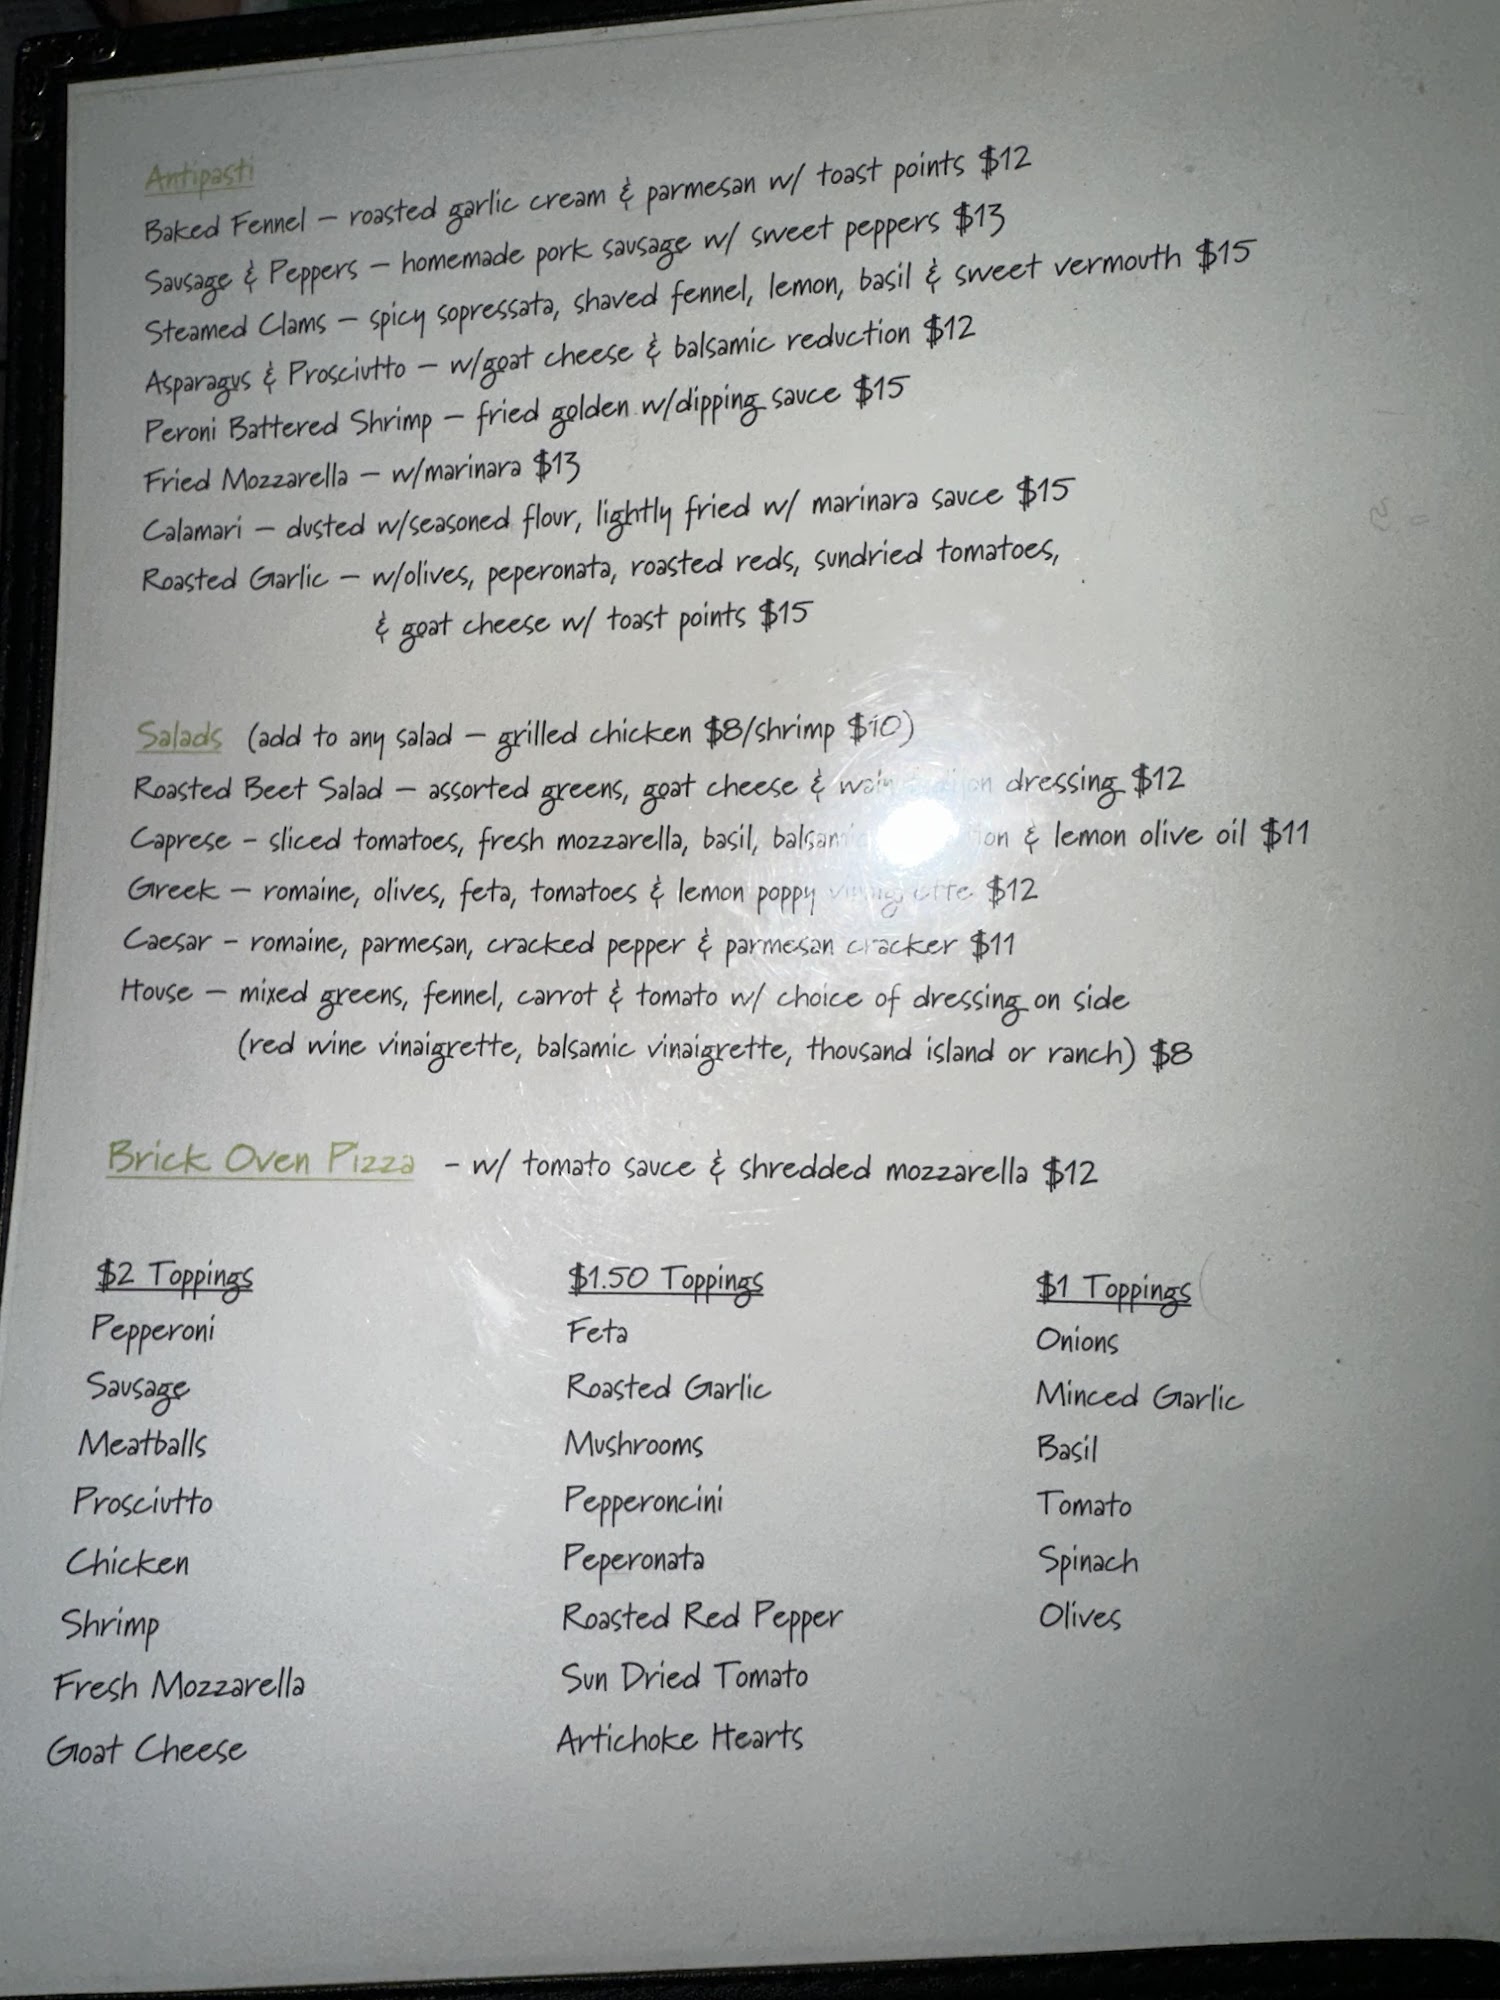 Antipasti
Baked Fennel – roasted garlic cream & parmesan w/ toast points $12
Sausage & Peppers – homemade pork sausage w/ sweet peppers $13
Steamed Clams – spicy sopressata, shaved fennel, lemon, basil & sweet vermouth $15
Asparagus & Prosciutto – w/goat cheese & balsamic reduction $12
Peroni Battered Shrimp – fried golden w/dipping sauce $15
Fried Mozzarella – w/marinara $13
Calamari – dusted w/seasoned flour, lightly fried w/ marinara sauce $15
Roasted Garlic – w/olives, peperonata, roasted reds, sundried tomatoes,
& goat cheese w/ toast points $15
Salads (add to any salad – grilled chicken $8/shrimp $10)
Roasted Beet Salad – assorted greens, goat cheese & dressing $12
Caprese - sliced tomatoes, fresh mozzarella, basil, balsamic & lemon olive oil $11
Greek – romaine, olives, feta, tomatoes & lemon poppy vinaigrette $12
Caesar - romaine, parmesan, cracked pepper & parmesan cracker $11
House – mixed greens, fennel, carrot & tomato w/ choice of dressing on side
(red wine vinaigrette, balsamic vinaigrette, thousand island or ranch) $8
Brick Oven Pizza - w/ tomato sauce & shredded mozzarella $12
$2 Toppings
Pepperoni
Sausage
Meatballs
Prosciutto
Chicken
Shrimp
Fresh Mozzarella
Goat Cheese
$1.50 Toppings
Feta
Roasted Garlic
Mushrooms
Pepperoncini
Peperonata
Roasted Red Pepper
Sun Dried Tomato
Artichoke Hearts
$1 Toppings
Onions
Minced Garlic
Basil
Tomato
Spinach
Olives